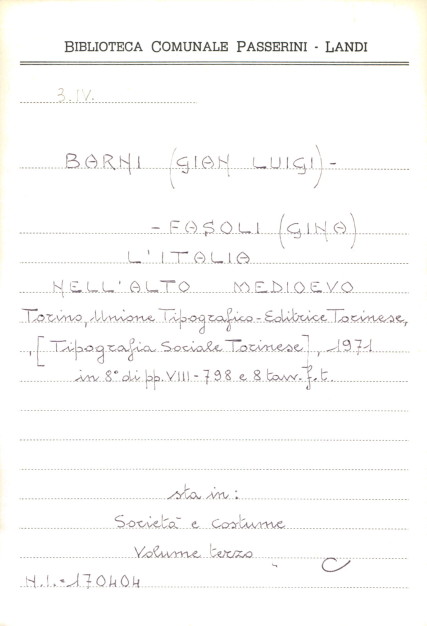 BIBLIOTECA COMUNALE PASSERINI - LANDI
3.IV.
BARNI (GIAN LUIGI) -
- FASOLI (GINA)
L'ITALIA
NELL'ALTO MEDIOEVO
Torino, Unione Tipografico-Editrice Torinese,
, [Tipografia Sociale Torinese], 1971
in 8° di pp. VIII-798 e 8 tavv. f.t.
sta in:
Società e Costume
Volume terzo
N.I. 170404